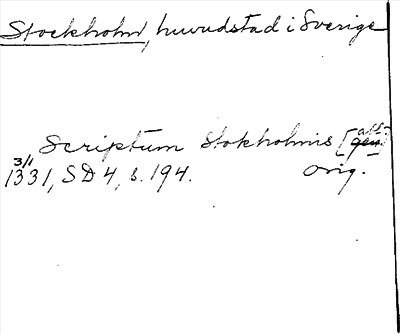 Stockholm, huvudstad i Sverige
Scriptum Stokholmis [abl.]
3/1
1331, SD 4, s. 194. Orig.